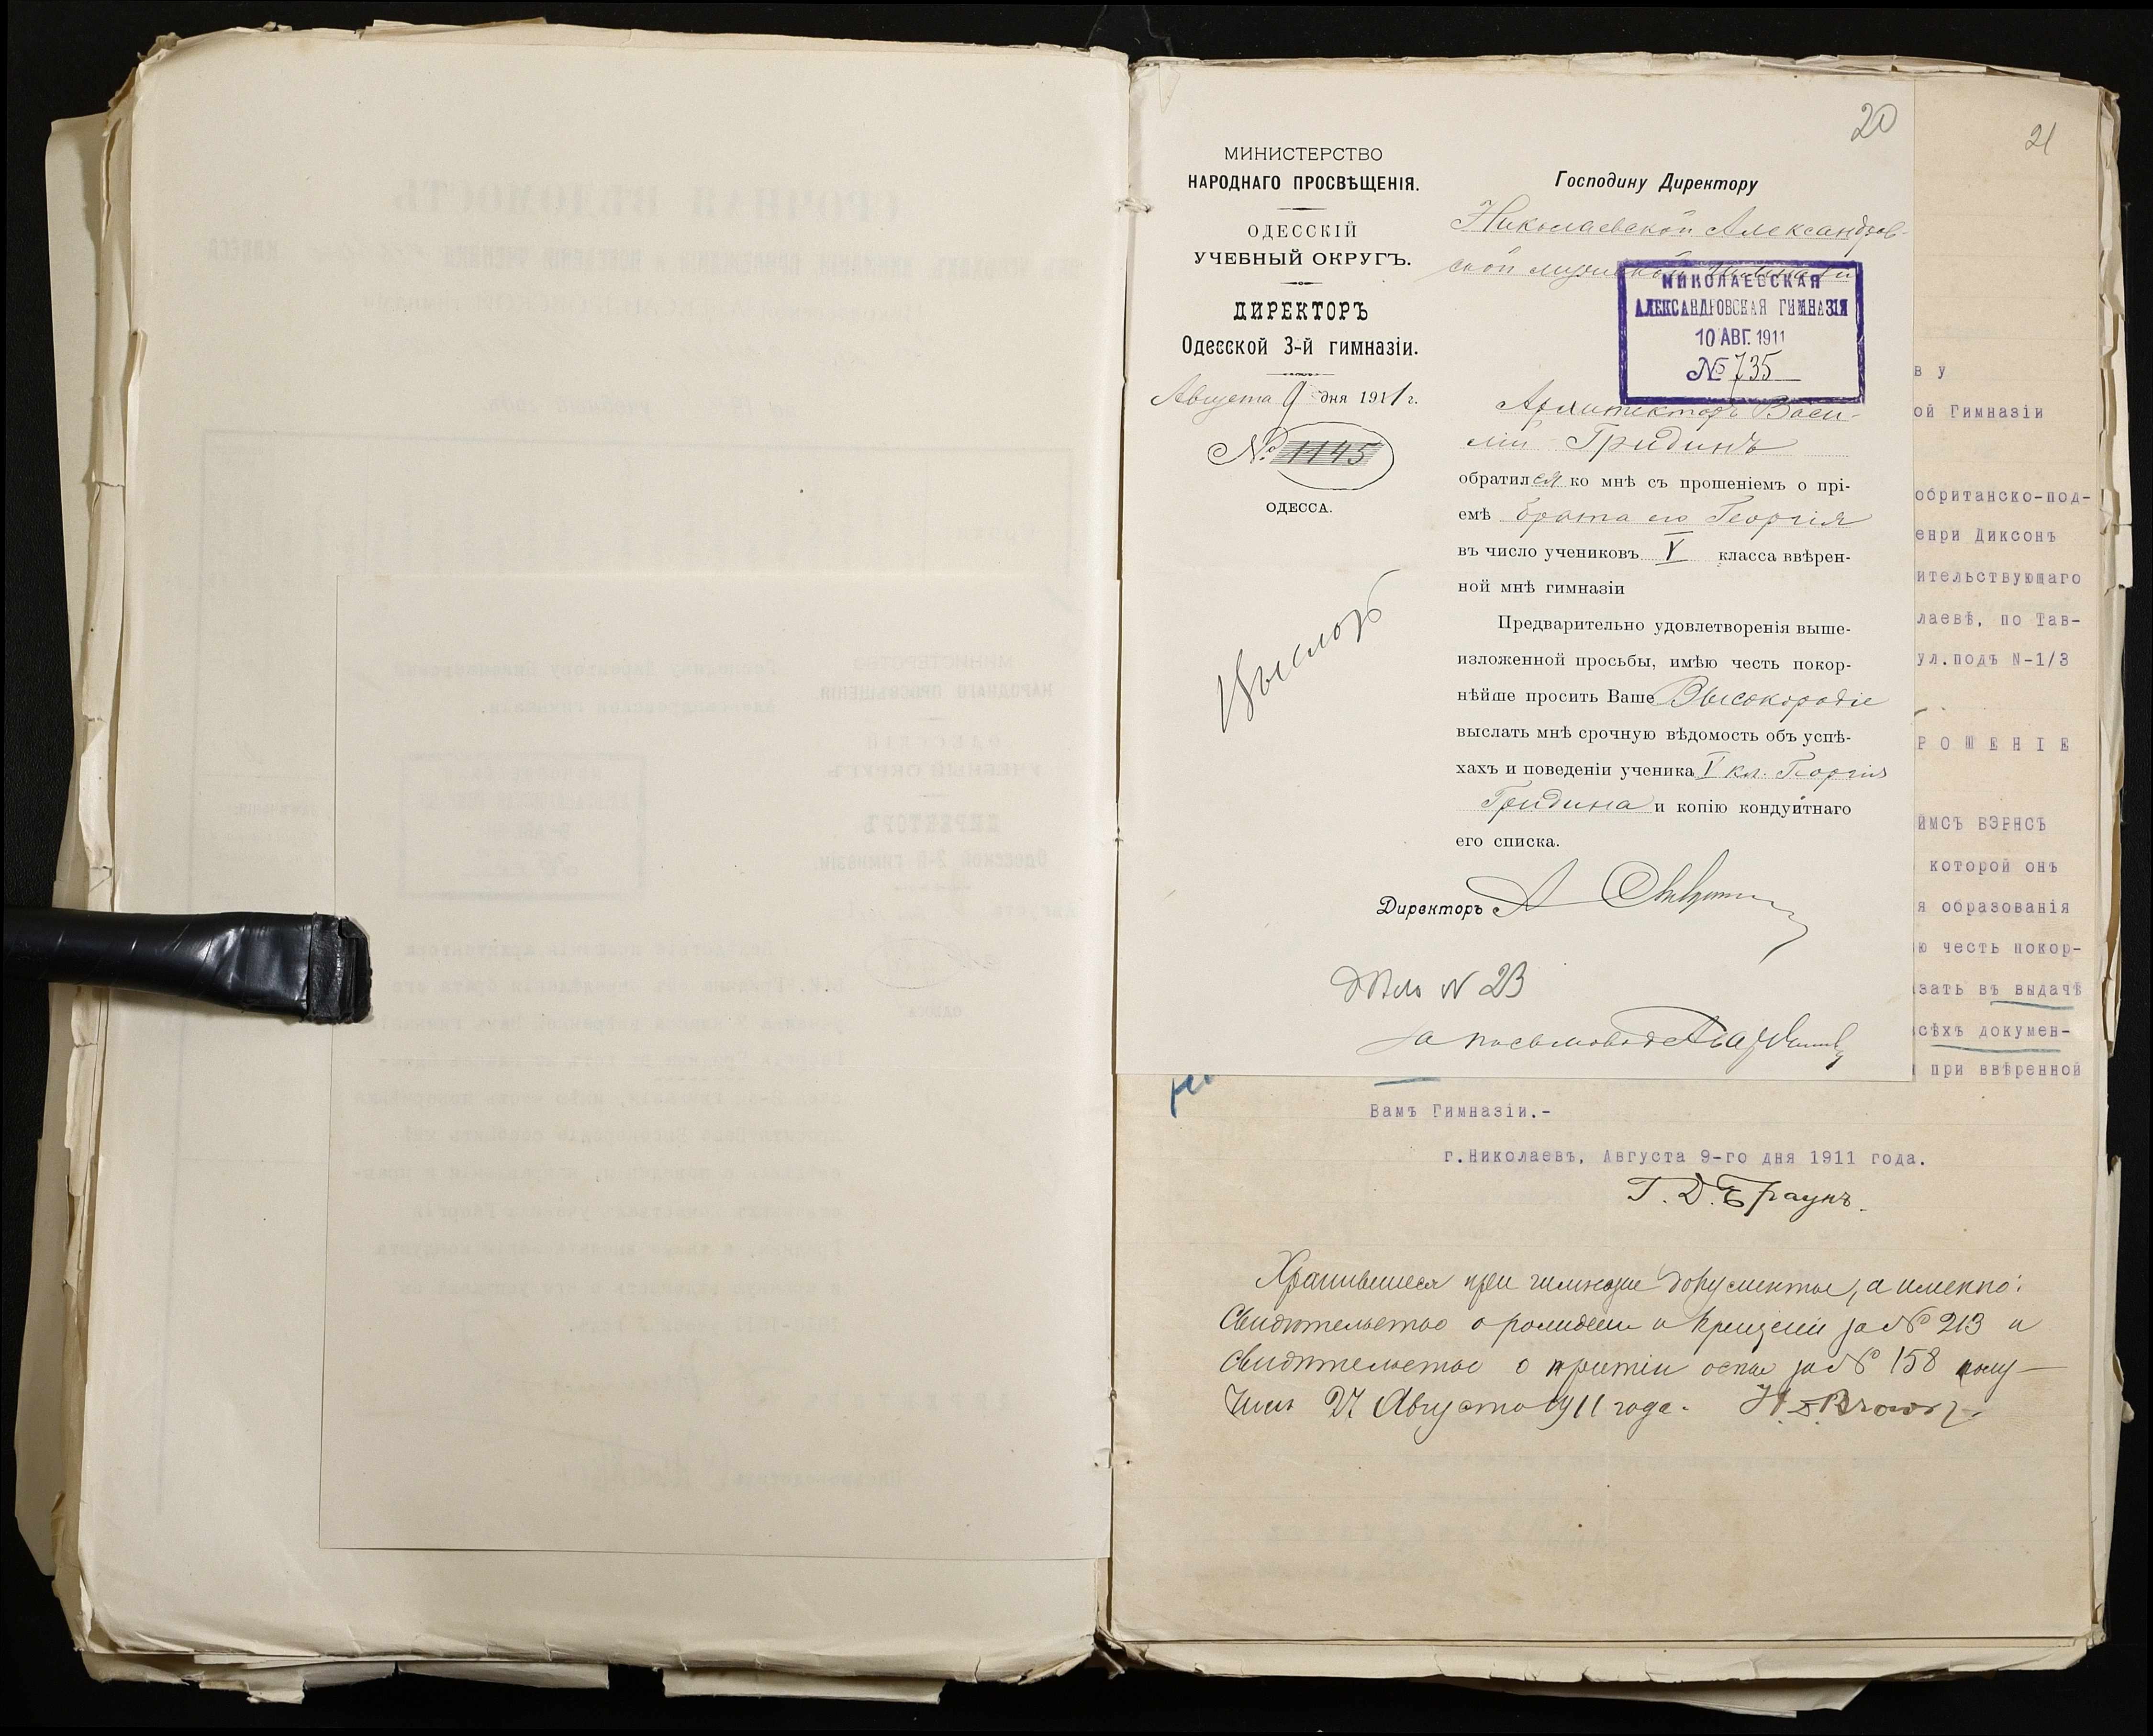 20
МИНИСТЕРСТВО
НАРОДНАГО ПРОСВѢЩЕНІЯ.
ОДЕССКІЙ
УЧЕБНЫЙ ОКРУГЪ.
ДИРЕКТОРЪ
Одесской 3-й гимназіи.
Августа 9 дня 1911 г.
№ 1145
ОДЕССА.
Господину Директору
Николаевской Александров-
ской мужской гимназіи
НИКОЛАЕВСКАЯ
АЛЕКСАНДРОВСКАЯ ГИМНАЗІЯ
10 АВГ. 1911
№ 735
Архитекторъ Васи-
лій Гридинъ
обратился ко мнѣ съ прошеніемъ о прі-
емѣ брата его Георгія
въ число учениковъ V класса ввѣрен-
ной мнѣ гимназіи
Предварительно удовлетворенія выше-
изложенной просьбы, имѣю честь покор-
нѣйше просить Ваше Высокородіе
выслать мнѣ срочную вѣдомость объ успѣ-
хахъ и поведеніи ученика V кл. Георгія
Гридина и копію кондуитнаго
его списка.
Директоръ А
Дѣло № 23
За письмоводителя
21
в у
ой Гимназіи
обританско-под-
енри Диксонъ
ительствующаго
лаевѣ, по Тав-
ул.подъ N-1/3
Р О Ш Е Н І Е
ймсъ Вэрнсъ
которой онъ
я образованія
ю честь покор-
зать въ выдачѣ
сѣхъ докумен-
при ввѣренной
Вамъ Гимназіи.-
г.Николаевъ, Августа 9-го дня 1911 года.
Г. Д. Браунъ.
Хранившіеся при гимназіи документы, а именно:
Свидѣтельство о рожденіи и крещеніи за № 213 и
Свидѣтельство о привитіи оспы за № 158 полу-
чилъ 27 Августа 1911 года. H. D. Brown.